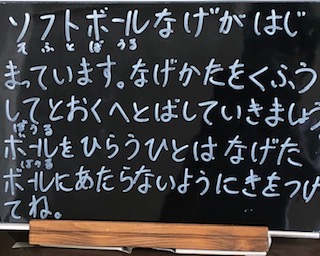 ソフトボールなげが はじ
そ ふ と ぼ う る
まっています。なげかたをくふう
してとおくへとばしていきましょう
ぼうる
ボールをひらうひとは なげた
ぼうる
ボールにあたらないようにきをつけ
てね。